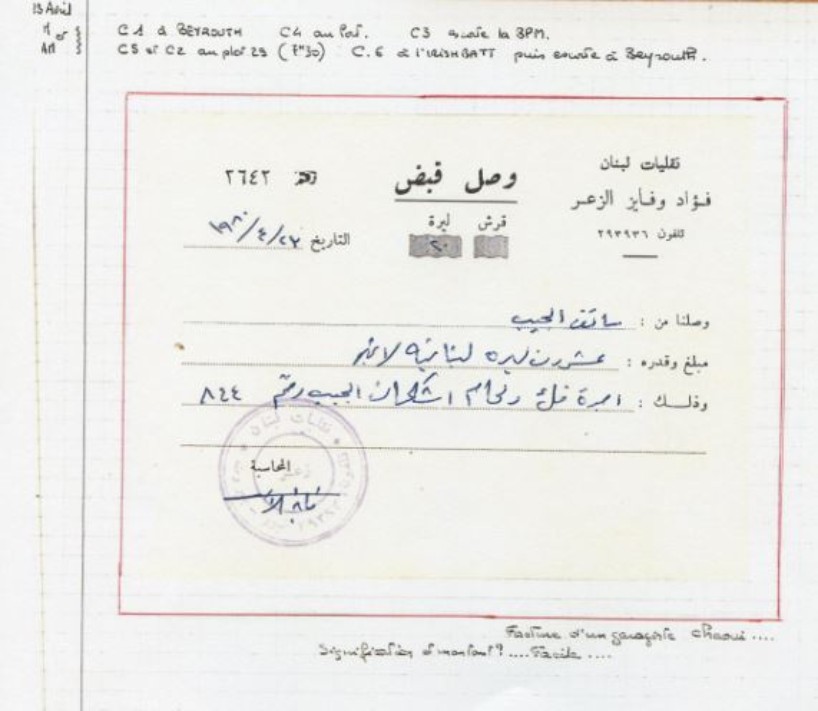 13 Avril
C1 à BEYROUTH C4 au Pot. C3 escorte la BPM.
C5 et C2 au plot 29 (7"30) C.6 à l'IRISHBATT puis escorte à Beyrouth.
نقليات لبنان
فؤاد وفايز الزعر
تلفون ٢٩٣٩٣٦
وصل قبض
٢٦٤٢
قرش ليرة
٢٠
التاريخ ٢٣/٤/١٩٨٠
وصلنا من : سائق الجيب
مبلغ وقدره : عشرون ليره لبنانية لاغير
وذلك : اجرة فك ولحام اشكمان الجيب رقم ٨٢٤
نقليات لبنان
المحاسبة
Facture d'un garagiste chaoui ....
Signification et montant ? .... Facile ....